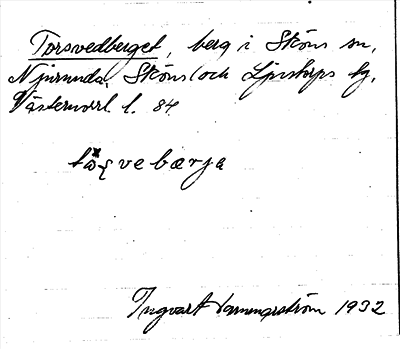 Torsvedberget, berg i Sköns sn,
Njurunda, Sköns (och Ljustorps tg,
Västernorrl. l. 84
Ingvart Hammarström 1932